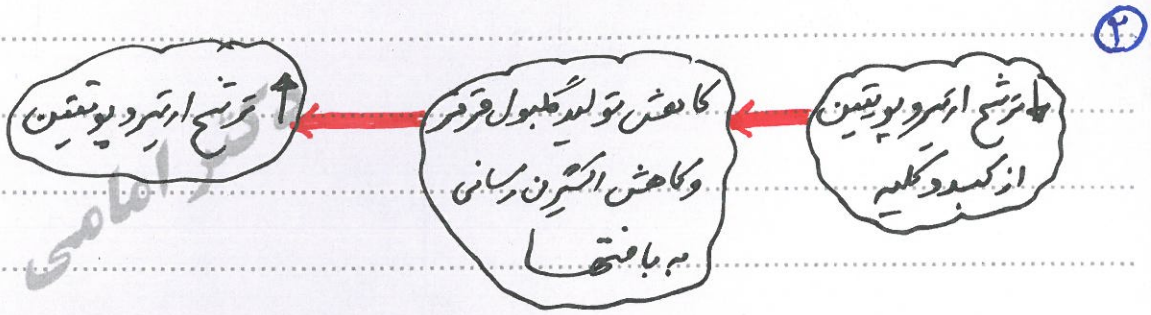 ۲
↓ ترشح اریتروپویتین
از کبد و کلیه
کاهش تولید گلبول قرمز
و کاهش اکسیژن رسانی
به بافتها
↑ ترشح اریتروپویتین
دکتر امامی